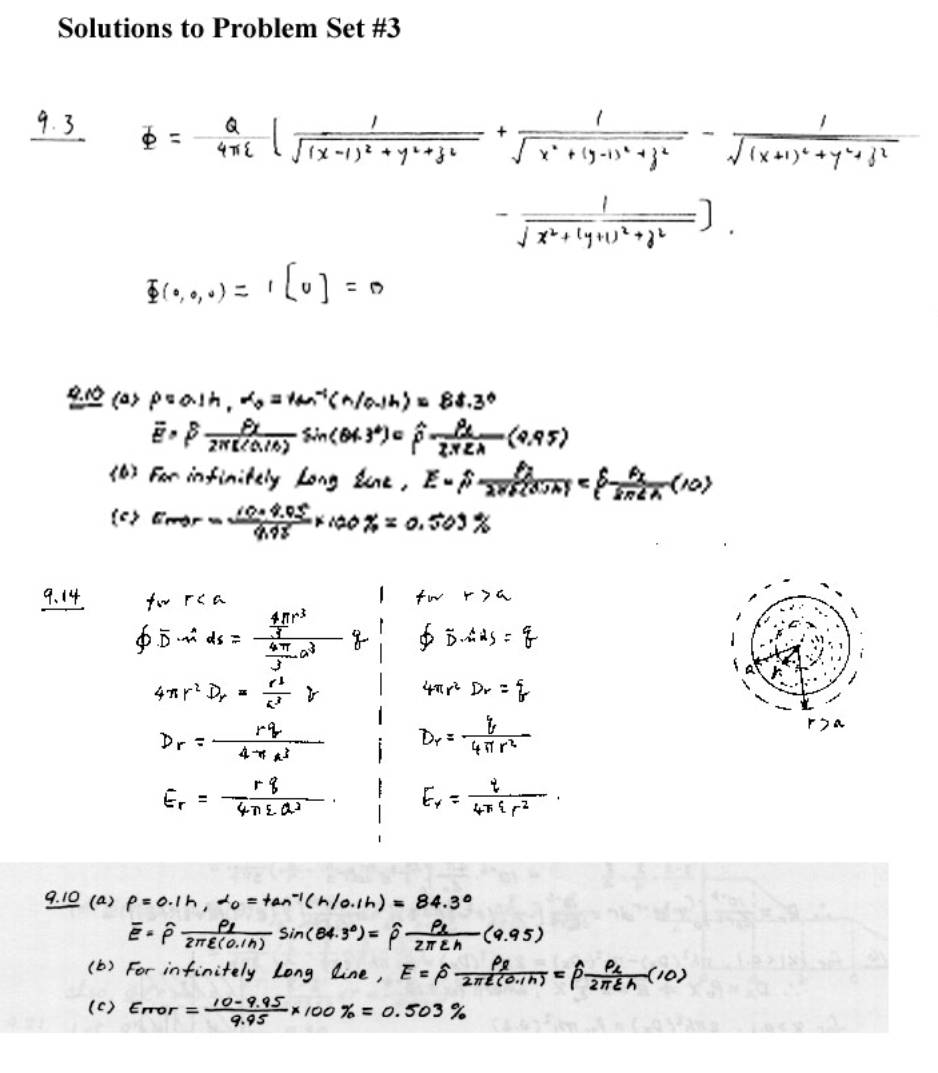 Solutions to Problem Set #3
9.3 Φ = Q/4πε [ 1/√((x-1)² + y² + z²) + 1/√(x² + (y-1)² + z²) - 1/√((x+1)² + y² + z²)
- 1/√(x² + (y+1)² + z²) ] .
Φ(0,0,0) = 1 [0] = 0
9.10 (a) ρ = 0.1h, α₀ = tan⁻¹(h/0.1h) = 84.3°
Ē = ρ̂ ρℓ/2πε(0.1h) Sin(84.3°) = ρ̂ ρℓ/2πεh (9.95)
(b) For infinitely Long Line, E = ρ̂ ρℓ/2πε(0.1h) = ρ̂ ρℓ/2πεh (10)
(c) Error = 10-9.95/9.95 × 100 % = 0.503 %
9.14 for r<a
∮ D̄·n̂ ds = (4πr³/3)/(4π/3 a³) q
4πr² Dr = r³/a³ q
Dr = rq/4πa³
Er = rq/4πεa³ .
for r>a
∮ D̄·n̂ ds = q
4πr² Dr = q
Dr = q/4πr²
Er = q/4πεr² .
a r
r>a
9.10 (a) ρ = 0.1h, α₀ = tan⁻¹(h/0.1h) = 84.3°
Ē = ρ̂ ρℓ/2πε(0.1h) Sin(84.3°) = ρ̂ ρℓ/2πεh (9.95)
(b) For infinitely Long Line, E = ρ̂ ρℓ/2πε(0.1h) = ρ̂ ρℓ/2πεh (10)
(c) Error = 10-9.95/9.95 × 100 % = 0.503 %